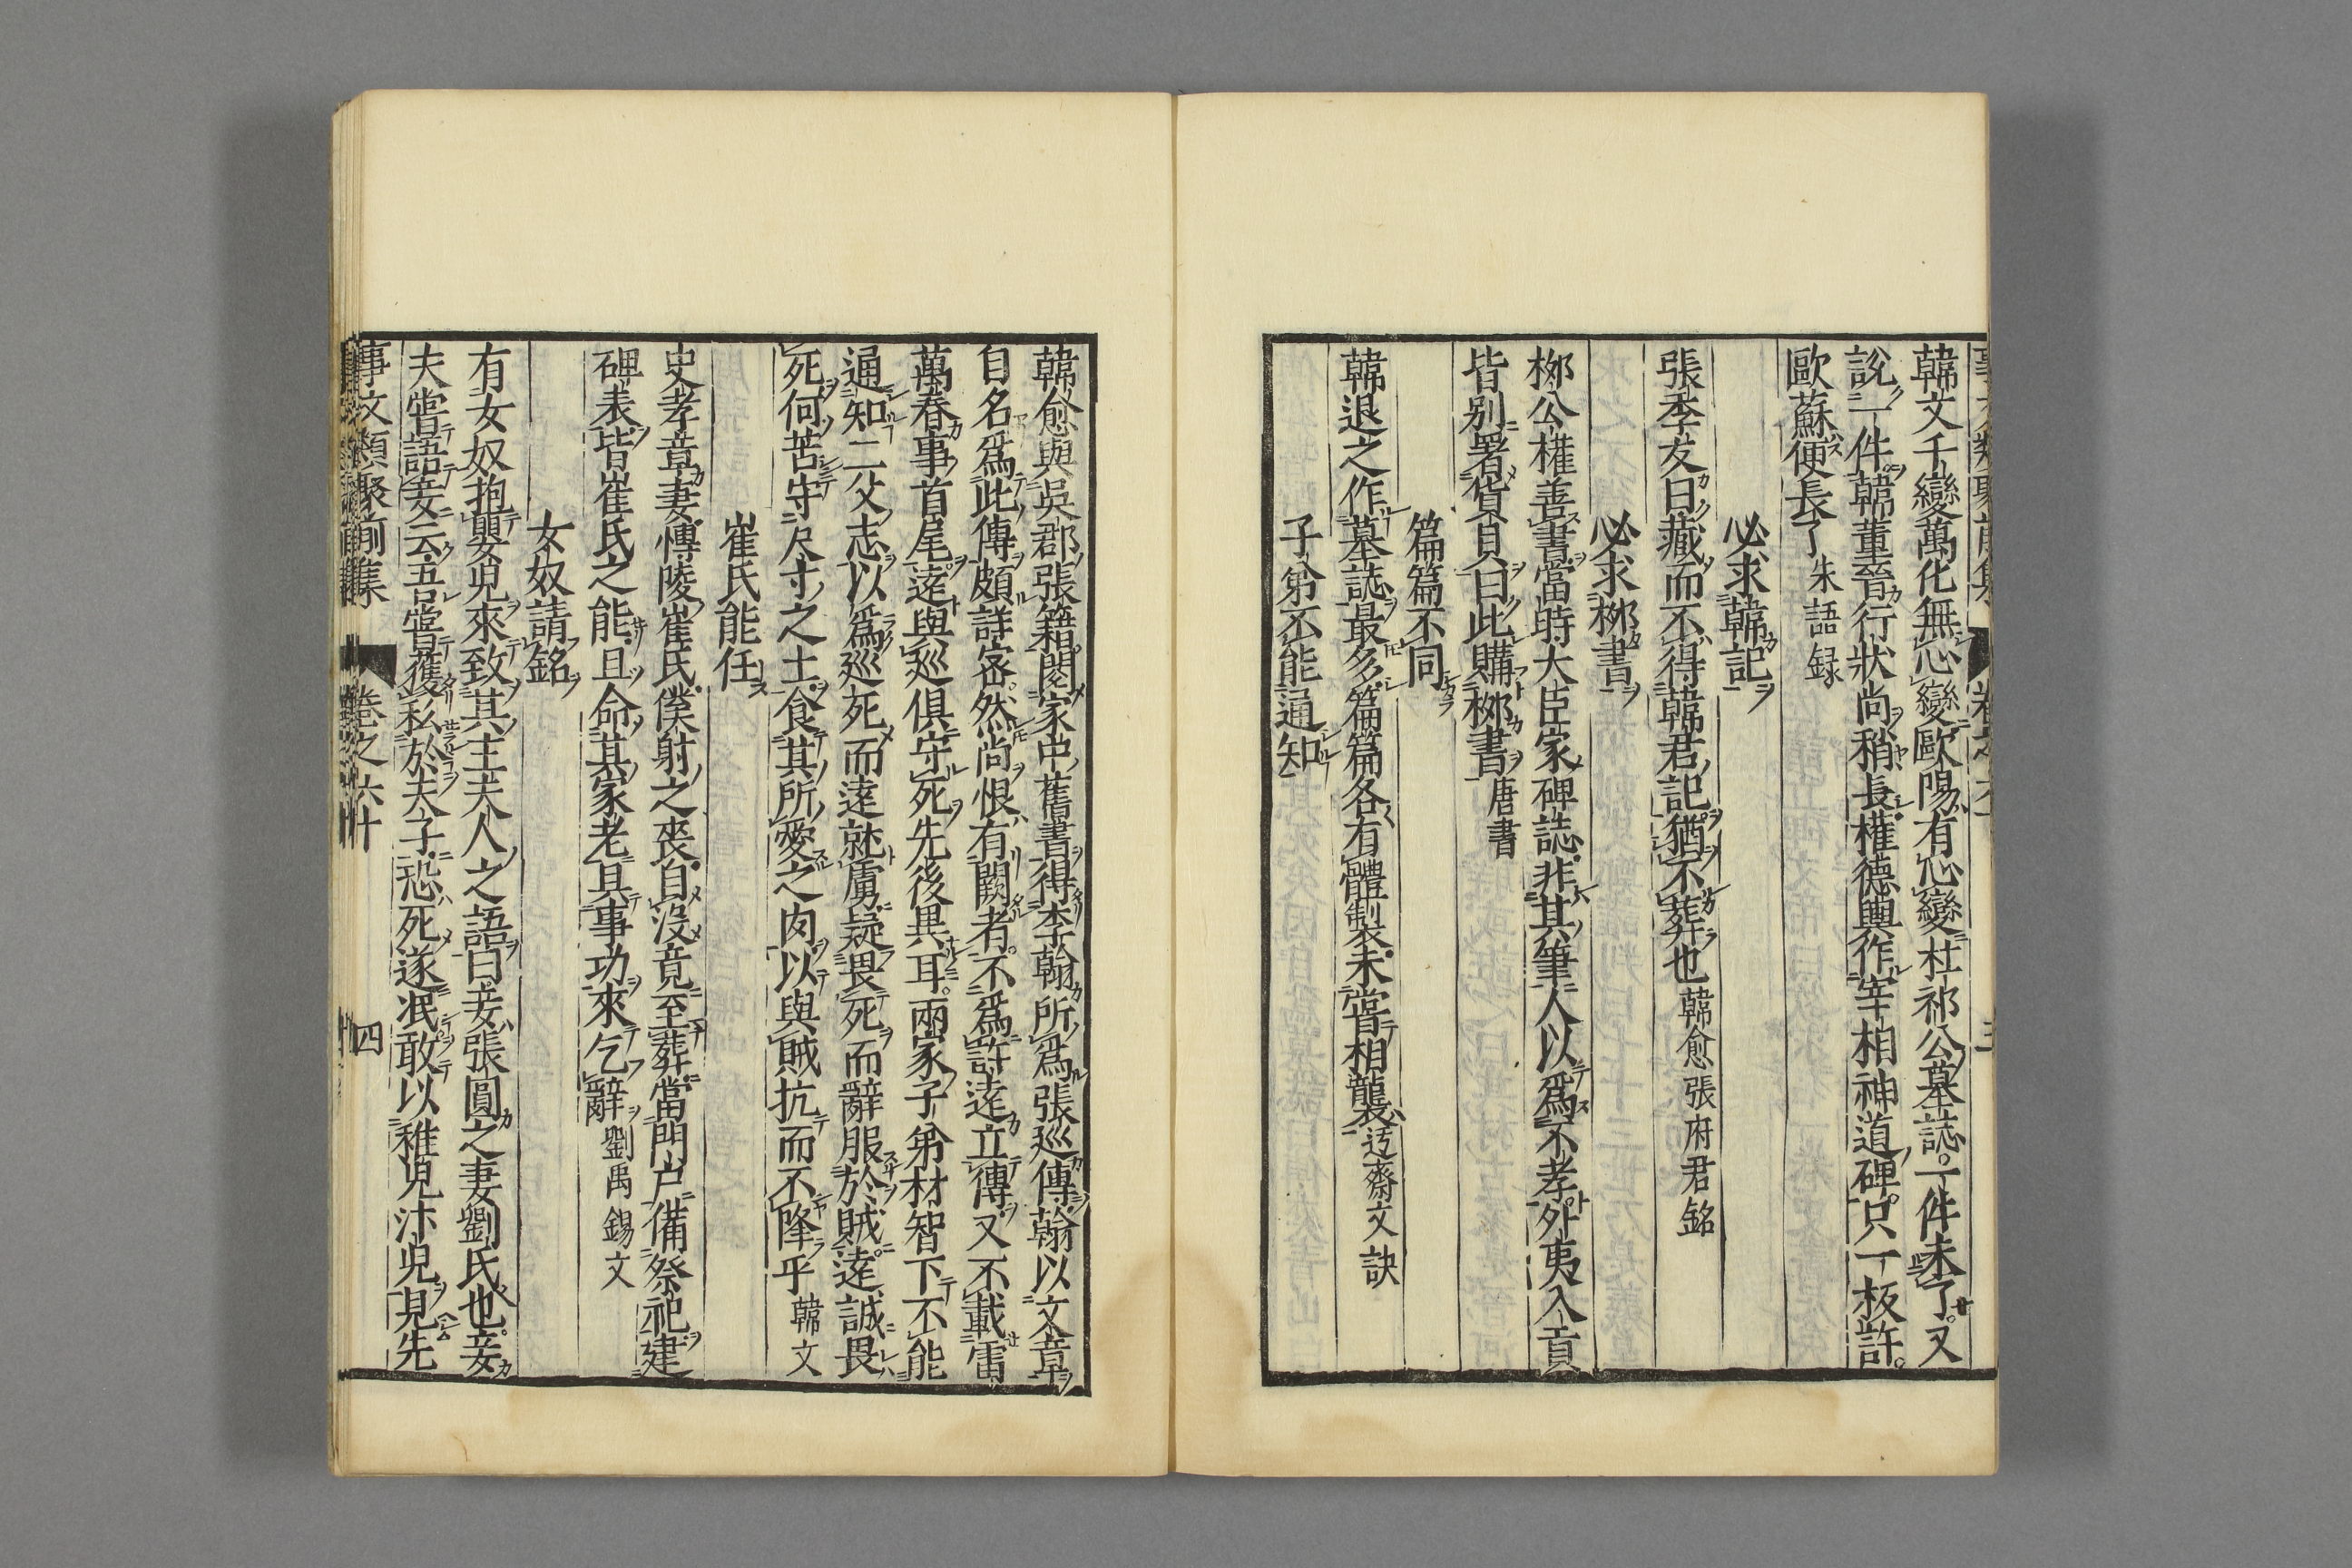 韓文千變萬化無心變歐陽有心變杜祁公墓誌一件未了又
說一件韓董晉行狀尚稍長權德輿作宰相神道碑只一板許
歐蘇便長了朱語録
必求韓記
張季友曰藏而不得韓君記猶不葬也韓愈張府君銘
必求桞書
桞公權善書當時大臣家碑誌非其筆人以爲不孝外夷入貢
皆别署貨貝曰此購桞書唐書
篇篇不同
韓退之作墓誌最多篇篇各有體製未甞相襲迃齋文訣
子弟不能通知
韓愈與吳郡張籍閱家中舊書得李翰所爲張巡傳翰以文章
自名爲此傳頗詳宻然尚恨有闕者不爲許逺立傳又不載雷
萬春事首尾逺與巡俱守死先後異耳兩家子弟材智下不能
通知二父志以爲巡死而逺就虜疑畏死而辭服於賊逺誠畏
死何苦守尺寸之土食其所愛之肉以與賊抗而不降乎韓文
崔氏能任
史孝章妻愽陵崔氏僕射之喪自没竟至葬當門户備祭祀建
碑表皆崔氏之能且命其家老具事功來乞辭劉禹錫文
女奴請銘
有女奴抱嬰兒來致其主夫人之語曰妾張圓之妻劉氏也妾
夫甞語妾云吾甞獲私於夫子恐死遂泯敢以稚兒汴兒見先
事文類聚前集 卷之六十 四